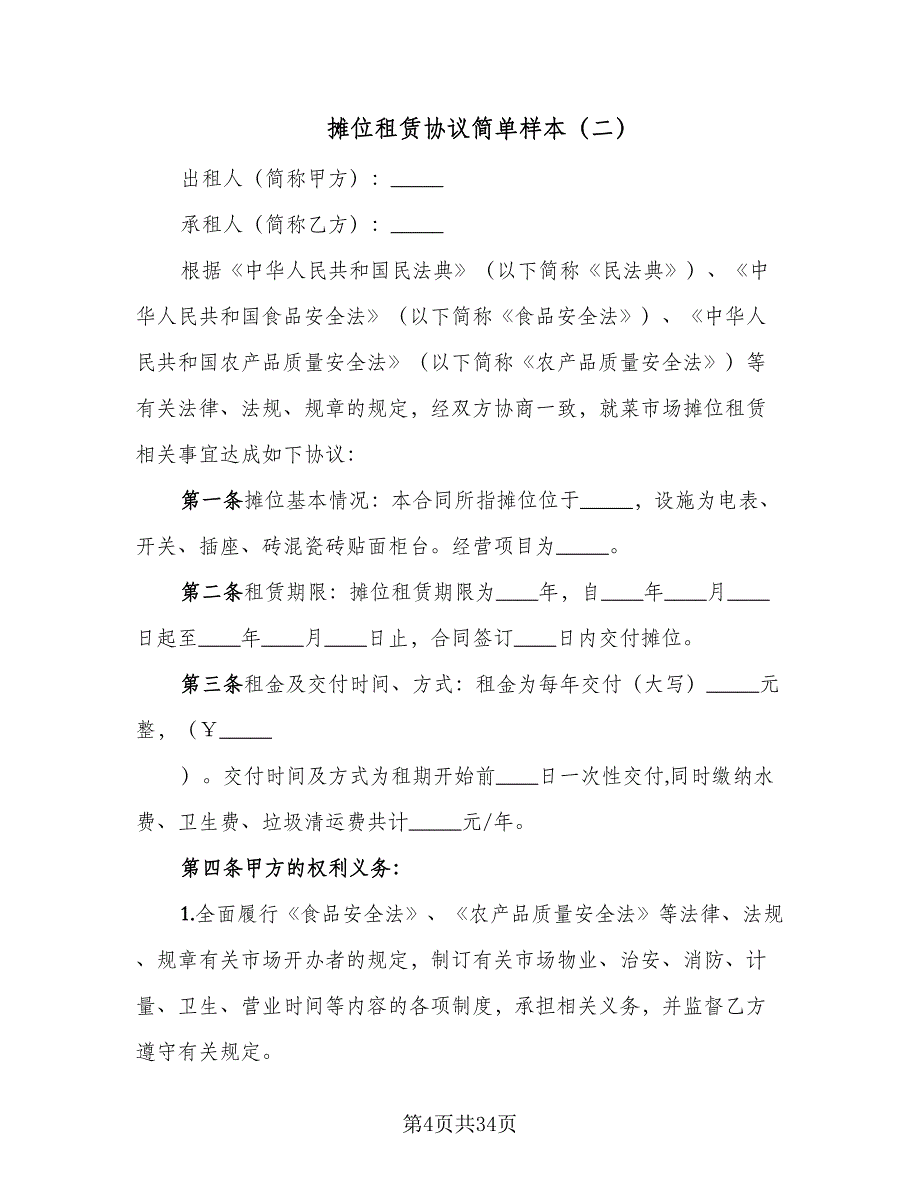 摊位租赁协议简单样本（二）
出租人（简称甲方）：_____
承租人（简称乙方）：_____
根据《中华人民共和国民法典》（以下简称《民法典》）、《中
华人民共和国食品安全法》（以下简称《食品安全法》）、《中华人
民共和国农产品质量安全法》（以下简称《农产品质量安全法》）等
有关法律、法规、规章的规定，经双方协商一致，就菜市场摊位租赁
相关事宜达成如下协议：
第一条摊位基本情况：本合同所指摊位位于_____，设施为电表、
开关、插座、砖混瓷砖贴面柜台。经营项目为_____。
第二条租赁期限：摊位租赁期限为____年，自____年____月____
日起至____年____月____日止，合同签订____日内交付摊位。
第三条租金及交付时间、方式：租金为每年交付（大写）_____元
整，（￥_____
）。交付时间及方式为租期开始前____日一次性交付,同时缴纳水
费、卫生费、垃圾清运费共计_____元/年。
第四条甲方的权利义务：
1.全面履行《食品安全法》、《农产品质量安全法》等法律、法规
、规章有关市场开办者的规定，制订有关市场物业、治安、消防、计
量、卫生、营业时间等内容的各项制度，承担相关义务，并监督乙方
遵守有关规定。
第4页共34页